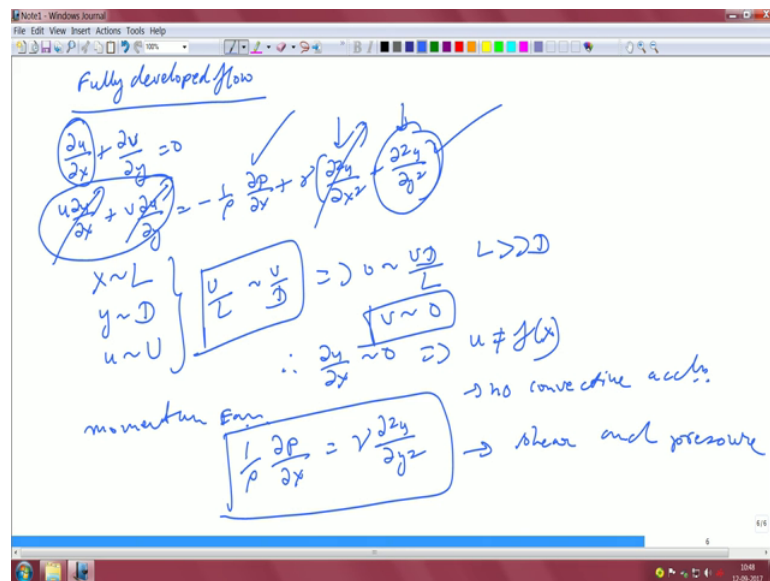 Note1 - Windows Journal
File Edit View Insert Actions Tools Help
100%
Fully developed flow
∂u/∂x + ∂v/∂y = 0
u ∂u/∂x + v ∂u/∂y = - 1/ρ ∂P/∂x + ν (∂²u/∂x² + ∂²u/∂y²)
x ~ L
y ~ D
u ~ U
U/L ~ v/D => v ~ UD/L L >> D
v ~ 0
∴ ∂u/∂x ~ 0 => u ≠ f(x)
→ no convective accln.
momentum Eqn.
1/ρ ∂P/∂x = ν ∂²u/∂y² → shear and pressure
6/6
6
10:48
12-09-2017